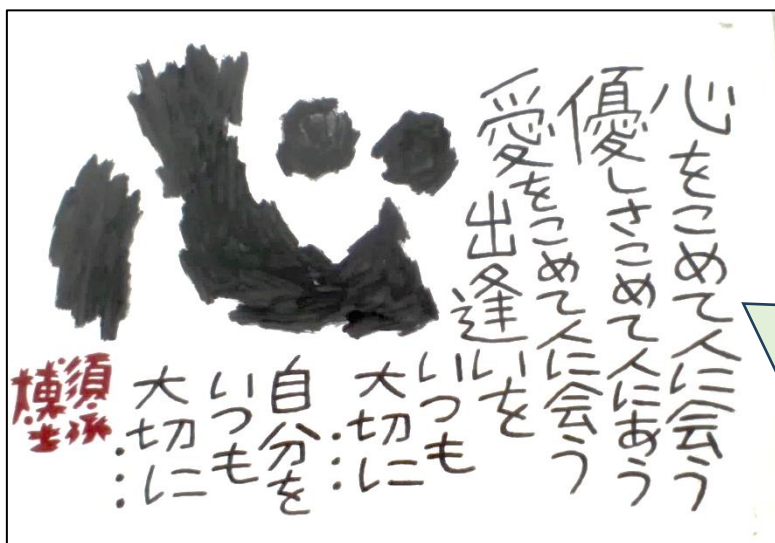 心
心をこめて人に会う
優しさこめて人にあう
愛をこめて人に会う
出逢いを
いつも
大切に…
自分を
いつも
大切に…
須永
博士